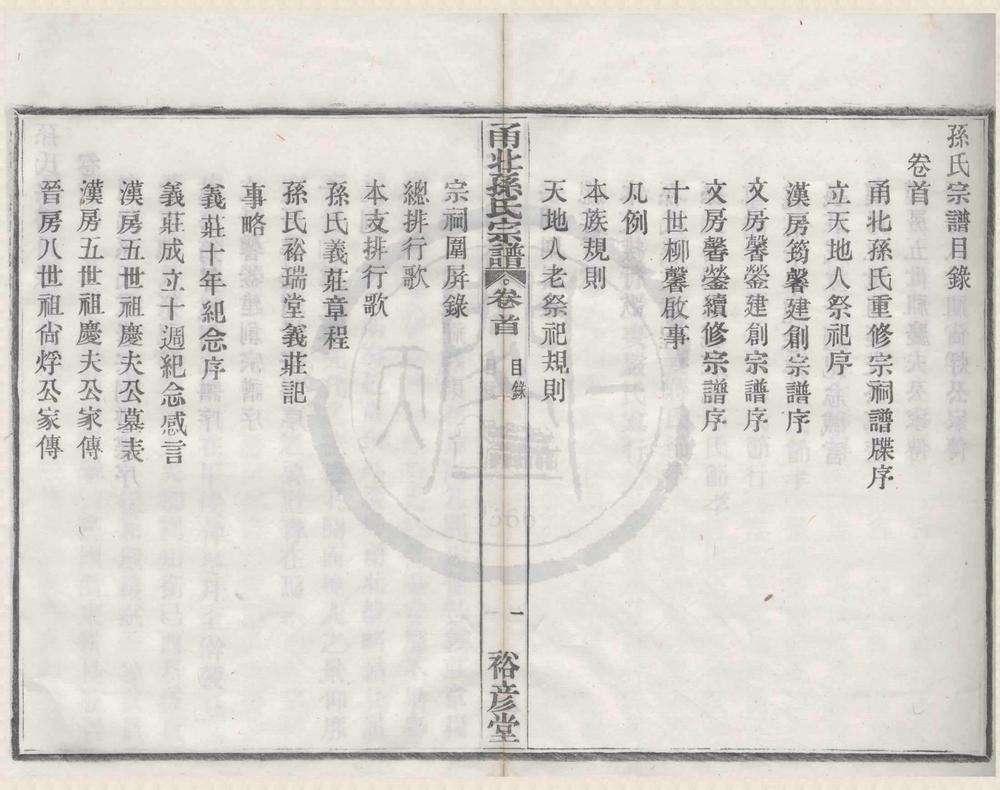 孫氏宗譜目錄
卷首
甬北孫氏重修宗祠譜牒序
立天地人祭祀序
漢房筠馨建創宗譜序
文房馨鎣建創宗譜序
文房馨鎣續修宗譜序
十世柳馨啟事
凡例
本族規則
天地人老祭祀規則
甬北孫氏宗譜 卷首 目錄 一 裕彥堂
宗祠圍屏錄
總排行歌
本支排行歌
孫氏義莊章程
孫氏裕瑞堂義莊記
事略
義莊十年紀念序
義莊成立十週紀念感言
漢房五世祖慶夫公墓表
漢房五世祖慶夫公家傳
晉房八世祖尙烰公家傳